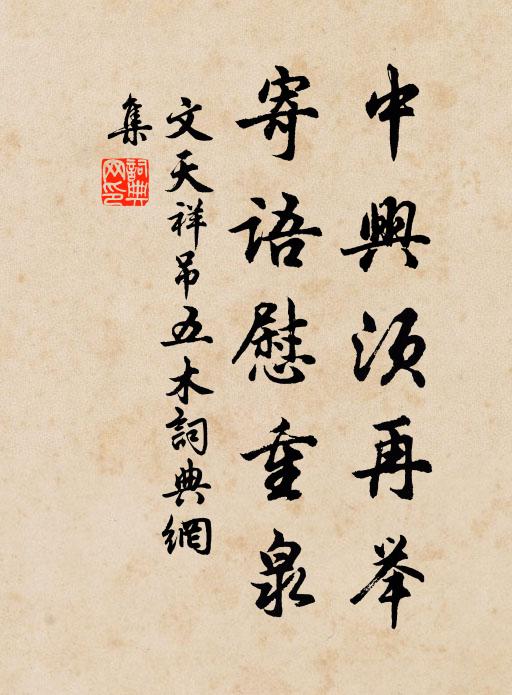 中興須再举
寄語慰重泉
文天祥吊五木詞典網
集
詞典网印